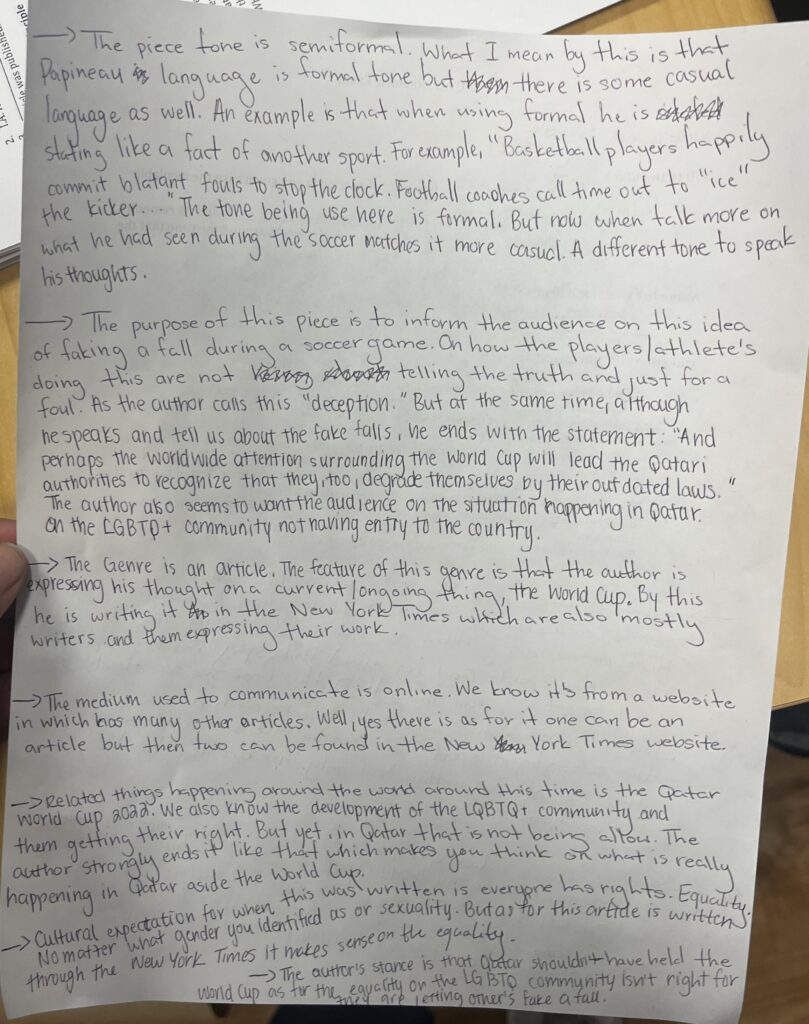 2. LA
was published
ciple
→ The piece tone is semiformal. What I mean by this is that
Papineau language is formal tone but there is some casual
language as well. An example is that when using formal he is
stating like a fact of another sport. For example, "Basketball players happily
commit blatant fouls to stop the clock. Football coaches call time out to "ice"
the kicker...." The tone being use here is formal. But now when talk more on
what he had seen during the soccer matches it more casual. A different tone to speak
his thoughts.
→ The purpose of this piece is to inform the audience on this idea
of faking a fall during a soccer game. On how the players/athlete's
doing this are not telling the truth and just for a
foul. As the author calls this "deception." But at the same time, although
he speaks and tell us about the fake falls, he ends with the statement: "And
perhaps the worldwide attention surrounding the World Cup will lead the Qatari
authorities to recognize that they, too, degrade themselves by their outdated laws."
The author also seems to want the audience on the situation happening in Qatar.
On the LGBTQ+ community not having entry to the country.
→ The Genre is an article. The feature of this genre is that the author is
expressing his thought on a current/ongoing thing, the World Cup. By this
he is writing it in the New York Times which are also mostly
writers and them expressing their work.
→ The medium used to communicate is online. We know it's from a website
in which has many other articles. Well, yes there is as for it one can be an
article but then two can be found in the New York Times website.
→ Related things happening around the world around this time is the Qatar
World Cup 2022. We also know the development of the LGBTQ+ community and
them getting their right. But yet, in Qatar that is not being allow. The
author strongly ends it like that which makes you think on what is really
happening in Qatar aside the World Cup.
→ Cultural expectation for when this was written is everyone has rights. Equality.
No matter what gender you identified as or sexuality. But as for this article is written
through the New York Times it makes sense on the equality.
→ The author's stance is that Qatar shouldn't have held the
World Cup as for the equality on the LGBTQ community isn't right for
they are letting other's fake a fall.